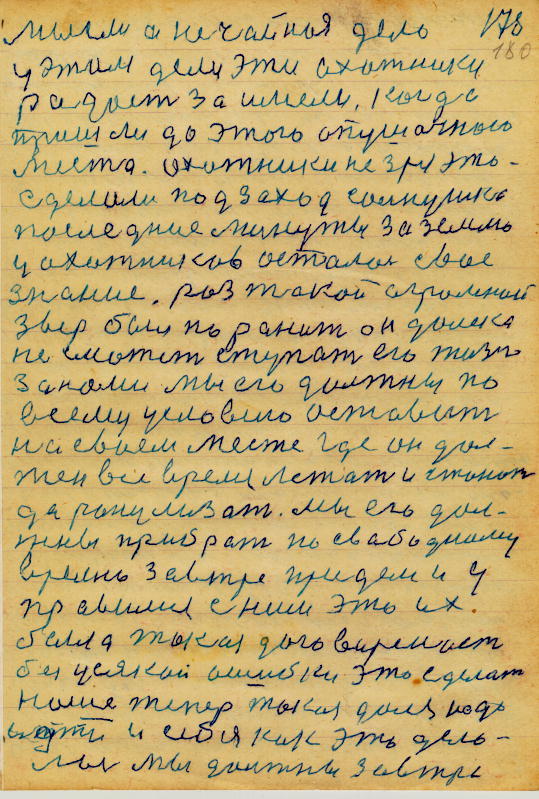 имели а не чайная дело 178
180
у этим дели эти охотники
радост за имели, когда
пришли до этого опушочного
места. охотники не зря это-
сделали под заход солнушка
последние минуты за землю
у охотников осталос свое
знание. роз такой огромной
звер был поранит он далека
не сможет ступат его жизн
законом мы его должны по
всему условию оставит
на своем месте где он дол-
жен все время лежат и стонат
да рану лизат. мы его дол-
жны прибрат по свабодному
время завтре придем и у
правимся с ним это их.
была такая договореност
без усякой ошибки это сделат
наше тепер такая доля надо
идти и себя как это дело-
мы мы должны завтре